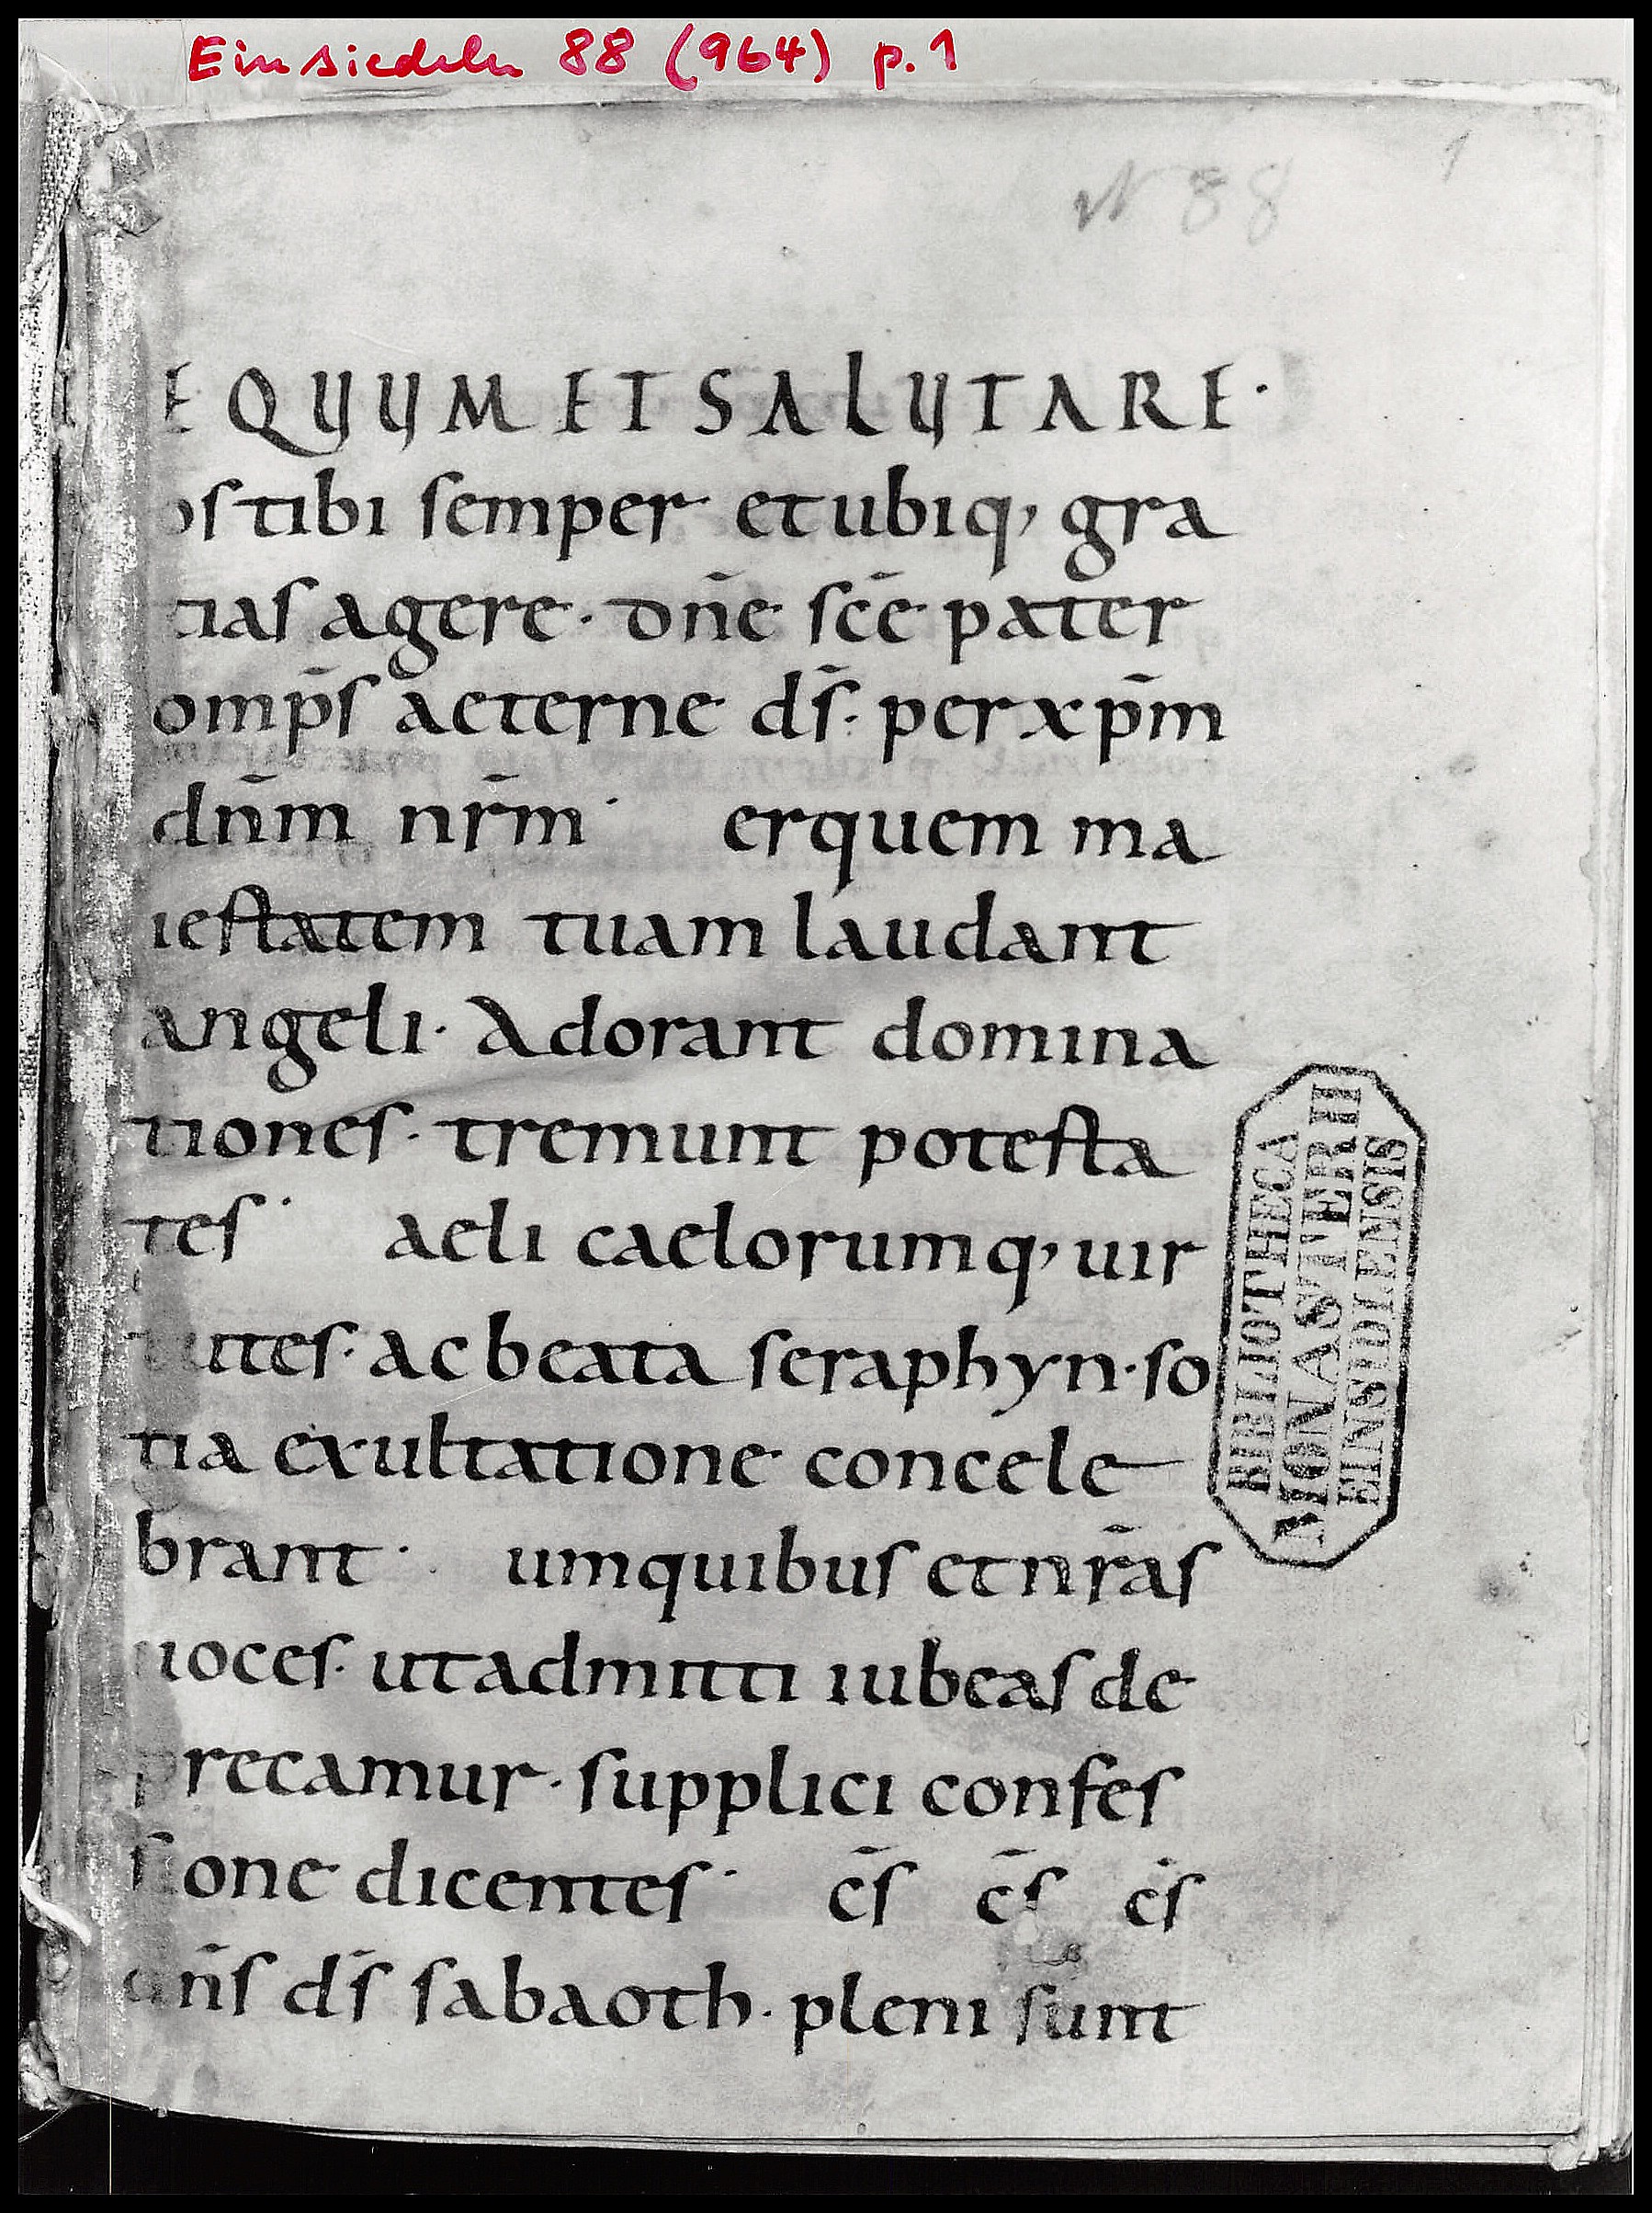 Einsiedeln 88 (964) p. 1
1
N 88
EQUUM ET SALUTARE·
os tibi semper et ubiq, gra
tias agere· dn̄e sc̄e pater
omp̄s aeterne ds̄· per xp̄m
dn̄m nr̄m· er quem ma
iestatem tuam laudant
angeli· Adorant domina
tiones· tremunt potesta
tes· aeli caelorumq, uir
tutes· ac beata seraphyn· so
tia exultatione concele
brant· um quibus et nr̄as
uoces· ut admitti iubeas de
precamur· supplici confes
sione dicentes· c̄s c̄s c̄s
dn̄s ds̄ sabaoth· pleni sunt
BIBLIOTHECA
MONASTERII
EINSIDLENSIS